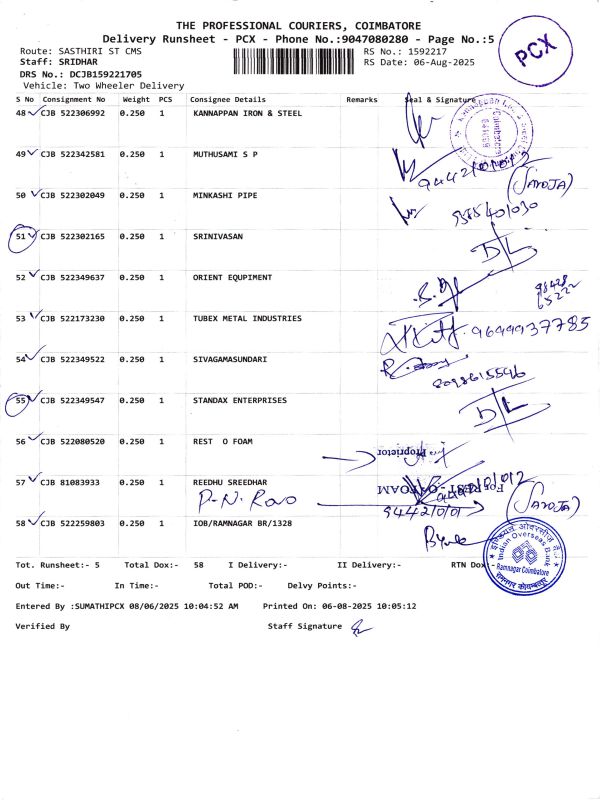 THE PROFESSIONAL COURIERS, COIMBATORE
Delivery Runsheet - PCX - Phone No.:9047080280 - Page No.:5
PCX
Route: SASTHIRI ST CMS
RS No.: 1592217
Staff: SRIDHAR
RS Date: 06-Aug-2025
DRS No.: DCJB159221705
Vehicle: Two Wheeler Delivery
S No Consignment No Weight PCS Consignee Details Remarks Seal & Signature
48 CJB 522306992 0.250 1 KANNAPPAN IRON & STEEL
49 CJB 522342581 0.250 1 MUTHUSAMI S P
(SAROJA)
50 CJB 522302049 0.250 1 MINKASHI PIPE
51 CJB 522302165 0.250 1 SRINIVASAN
D/L
52 CJB 522349637 0.250 1 ORIENT EQUPIMENT
53 CJB 522173230 0.250 1 TUBEX METAL INDUSTRIES
9699937785
54 CJB 522349522 0.250 1 SIVAGAMASUNDARI
8098615596
55 CJB 522349547 0.250 1 STANDAX ENTERPRISES
D/L
56 CJB 522080520 0.250 1 REST O FOAM
Proprietor
For REST-O-FOAM
57 CJB 81083933 0.250 1 REEDHU SREEDHAR
P.N. Rao
(SAROJA)
58 CJB 522259803 0.250 1 IOB/RAMNAGAR BR/1328
इंडियन ओवरसीज़ बैंक
Indian Overseas Bank
Ramnagar Coimbatore
रामनगर कोयम्बत्तूर
Tot. Runsheet:- 5 Total Dox:- 58 I Delivery:- II Delivery:- RTN Dox:-
Out Time:- In Time:- Total POD:- Delvy Points:-
Entered By :SUMATHIPCX 08/06/2025 10:04:52 AM Printed On: 06-08-2025 10:05:12
Verified By Staff Signature